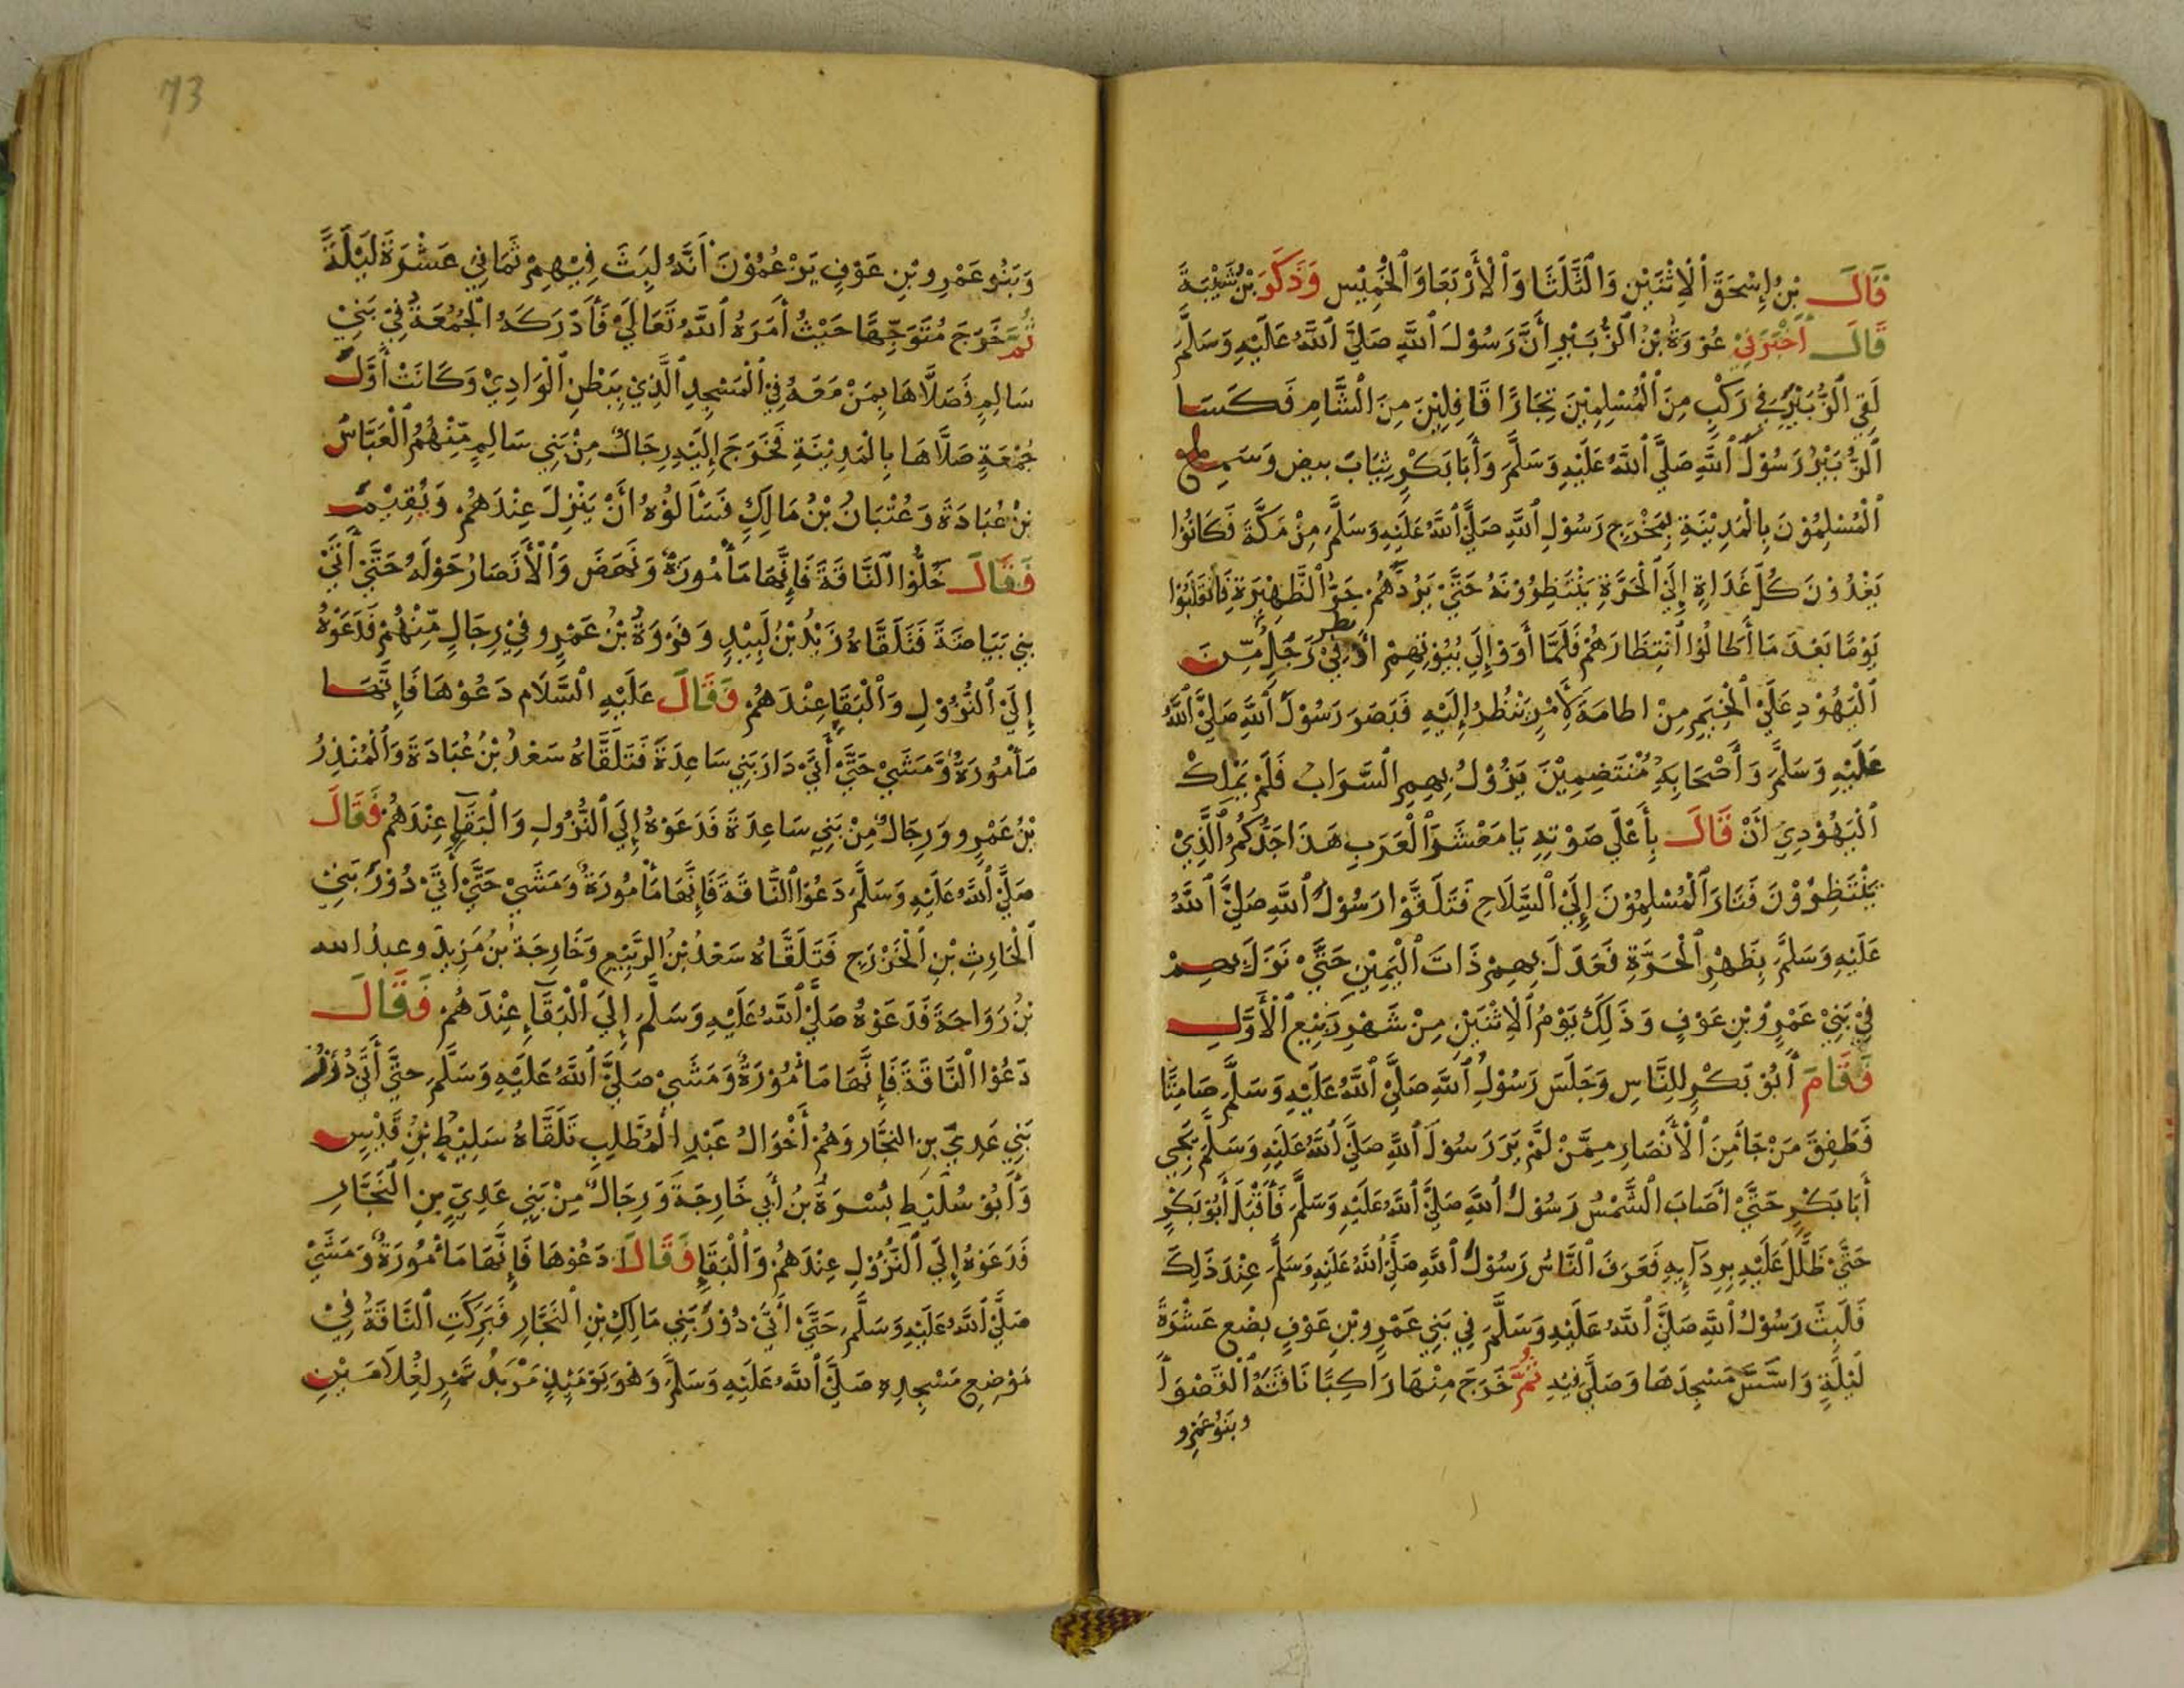 قَالَ بْنُ إِسْحَقَ ٱلْاِثْنَيْنِ وَالثَّلَثَا وَٱلْأَرْبَعَا وَٱلْخَمِيْس وَذَكَرَ بْنُ شَيْبَةَ
قَالَ أَخْبَرَنِيْ عُرْوَةُ بْنُ ٱلزُّبَيْرِ أَنَّ رَسُوْلَ ٱللَّهِ صَلَّىْ ٱللَّهُ عَلَيْهِ وَسَلَّمَ
لَقِيَ ٱلزُّبَيْرَ فِي رَكْبٍ مِنَ ٱلْمُسْلِمِيْنَ تِجَارًا قَافِلِيْنَ مِنَ ٱلشَّامِ فَكَسَا
ٱلزُّبَيْرُ رَسُوْلَ ٱللَّهِ صَلَّىْ ٱللَّهُ عَلَيْهِ وَسَلَّمَ وَأَبَا بَكْرٍ ثِيَابَ بيض وَسَمِعَ
ٱلْمُسْلِمُوْنَ بِالْمَدِيْنَةِ بِمَخْرَجِ رَسُوْلِ ٱللَّهِ صَلَّىْ ٱللَّهُ عَلَيْهِ وَسَلَّمَ مِنْ مَكَّةَ فَكَانُوْا
يَغْدُوْنَ كُلَّ غَدَاةٍ إِلَىْ ٱلْحَرَّةِ يَنْتَظِرُوْنَهُ حَتَّىْ يَرُدَّهُمْ حَرُّ ٱلظَّهِيْرَةِ فَانْقَلَبُوْا
يَوْمًا بَعْدَ مَا أَطَالُوْا ٱنْتِظَارَهُمْ فَلَمَّا أَوَوْا إِلَى بُيُوْتِهِمْ أَوْفِيْ رَجَلٌ مِّنَ
ٱلْيَهُوْدِ عَلَىْ ٱلْخِيَمِ مِنْ اطامه لِأَمْرٍ يَنْظُرُ إِلَيْهِ فَبَصَرَ رَسُوْلَ ٱللَّهِ صَلَّىْ ٱللَّهُ
عَلَيْهِ وَسَلَّمَ وَأَصْحَابِهِ مُنْتَضِمِيْنَ يَزُوْلُ بِهِمِ ٱلسَّرَابُ فَلَمْ يَمْلِكْ
ٱلْيَهُوْدِيُ أَنْ قَالَ بِأَعْلَى صَوْتِهِ يَا مَعْشَرَ ٱلْعَرَبِ هَذَا جَدُّكُمُ ٱلَّذِيْ
تَنْتَظِرُوْنَ فَثَارَ ٱلْمُسْلِمُوْنَ إِلَىْ ٱلسِّلَاحِ فَتَلَقَّوْا رَسُوْلَ ٱللَّهِ صَلَّىْ ٱللَّهُ
عَلَيْهِ وَسَلَّمَ بِظَهْرِ ٱلْحَرَّةِ فَعَدَلَ بِهِمْ ذَاتَ ٱلْيَمِيْنِ حَتَّىْ نَزَلَ بِهِمْ
فِيْ بَنِيْ عَمْرِو بْنِ عَوْفٍ وَذَلِكَ يَوْمُ ٱلْاِثْنَيْنِ مِنْ شَهْرِ رَبِيْعِ ٱلْأَوَّلِ
فَقَامَ أَبُوْ بَكْرٍ لِلنَّاسِ وَجَلَسَ رَسُوْلُ ٱللَّهِ صَلَّىْ ٱللَّهُ عَلَيْهِ وَسَلَّمَ صَامِتًا
فَطَفِقَ مَنْ جَأَ مِنَ ٱلْأَنْصَارِ مِمَّنْ لَمْ يَرَ رَسُوْلَ ٱللَّهِ صَلَّىْ ٱللَّهُ عَلَيْهِ وَسَلَّمَ يَجِى
أَبَا بَكْرٍ حَتَّىْ أَصَابَ ٱلشَّمْسُ رَسُوْلَ ٱللَّهِ صَلَّىْ ٱللَّهُ عَلَيْهِ وَسَلَّمَ فَأَقْبَلَ أَبُوْ بَكْرٍ
حَتَّىْ ظَلَّلَ عَلَيْهِ بِرِدَآئِهِ فَعَرَفَ ٱلنَّاسُ رَسُوْلَ ٱللَّهِ صَلَّىْ ٱللَّهُ عَلَيْهِ وَسَلَّمَ عِنْدَ ذَلِكَ
فَلَبِثَ رَسُوْلُ ٱللَّهِ صَلَّىْ ٱللَّهُ عَلَيْهِ وَسَلَّمَ فِي بَنِي عَمْرِو بْنِ عَوْفٍ بِضْعِ عَشْرَةَ
لَيْلَةٍ وَاَسَّسَ مَسْجِدَهَا وَصَلَّىْ فِيْهِ ثُمَّ خَرَجَ مِنْهَا رَاكِبًا نَاقَتَهُ ٱلْقَصْوَأَ
وبَنُوْ عَمْرٍو
73
وَبَنُوْ عَمْرِو بْنِ عَوْفٍ يَزْعُمُوْنَ أَنَّهُ لِبَثَ فِيْهِمْ ثَمَانِيَ عَشْرَةَ لَيْلَةً
ثُمَّ خَرَجَ مُتَوَجِّهًا حَيْثُ أَمَرَهُ ٱللَّهُ تَعَالَىْ فَأَدْرَكَهُ ٱلْجُمُعَةُ فِيْ بَنِيْ
سَالِمٍ فَصَلَّاهَا بِمَنْ مَعَهُ فِيْ ٱلْمَسْجِدِ ٱلَّذِيْ بِبَطْنِ ٱلْوَادِيْ وَكَانَتْ أَوَّلَ
جُمْعَةٍ صَلَّاهَا بِالْمَدِيْنَةِ فَخَرَجَ إِلَيْهِ رِجَالٌ مِنْ بَنِي سَالِمٍ مِّنْهُمُ ٱلْعَبَّاسُ
بْنُ عُبَادَةَ وَعُتْبَانُ بْنُ مَالِكٍ فَسَأَلُوْهُ أَنْ يَنْزِلَ عِنْدَهُمْ وَيُقِيْمَ
فَقَالَ خَلُّوْا ٱلنَّاقَةَ فَإِنَّهَا مَأْمُورَةٌ وَنَهَضَ وَٱلْأَنْصَارُ حَوْلَهُ حَتَّىْ أَتَىْ
بني بَيَاضَةَ فَتَلَقَّاهُ زَيْدُ بْنُ لَبِيْدٍ وَفَرْوَةُ بْنُ عَمْرٍو فِيْ رِجَالٍ مِّنْهُمْ فَدَعَوْهُ
إِلَىْ ٱلنُّزُوْلِ وَٱلْبَقَإِ عِنْدَهُمْ فَقَالَ عَلَيْهِ ٱلسَّلَام دَعُوْهَا فَإِنَّهَا
مَأْمُورَةٌ وَمَشَىْ حَتَّىْ أَتَىْ دَارَ بَنِي سَاعِدَةَ فَتَلَقَّاهُ سَعْدُ بْنُ عُبَادَةَ وَٱلْمُنْذِرُ
بْنُ عَمْرٍو وَرِجَالٌ مِنْ بَنِي سَاعِدَةَ فَدَعَوْهُ إِلَىْ ٱلنُّزُولِ وَٱلْبَقَآءِ عِنْدَهُمْ فَقَالَ
صَلَّىْ ٱللَّهُ عَلَيْهِ وَسَلَّمَ دَعُوْا ٱلنَّاقَةَ فَإِنَّهَا مَأْمُورَةٌ وَمَشَىْ حَتَّىْ أَتَىْ دُوْرَ بَنِيْ
ٱلْحَارِثِ بْنِ ٱلْخَزْرَجِ فَتَلَقَّاهُ سَعْدُ بْنُ ٱلرَّبِيْعِ وَخَارِجَةُ بْنُ مَزِيدٍ وعبدُ الله
بْنُ رَوَاحَةَ فَدَعَوْهُ صَلَّىْ ٱللَّهُ عَلَيْهِ وَسَلَّمَ إِلَىْ ٱلْبَقَآءِ عِنْدَهُمْ فَقَالَ
دَعُوْا ٱلنَّاقَةَ فَإِنَّهَا مَأْمُوْرَةٌ وَمَشَىْ صَلَّىْ ٱللَّهُ عَلَيْهِ وَسَلَّمَ حَتَّىْ أَتَىْ دُوْرَ
بَنِي عَدِيِّ بن النجَّار وَهُمْ أَخْوَالُ عَبْدِ ٱلْمُطَّلِبِ تَلَقَّاهُ سَلِيْطٍ بْنِ قَيْسٍ
وَأَبُوْ سُلَيْطٍ بُسْرَةُ بْنُ أَبِي خَارِجَةَ وَرِجَالٌ مِنْ بَنِي عَدِيِّ بنِ ٱلنَّجَّارِ
فَدَعَوْهُ إِلَىْ ٱلنُّزُوْلِ عِنْدَهُمْ وَٱلْبَقَإِ فَقَالَ دَعُوْهَا فَإِنَّهَا مَأْمُوْرَةٌ وَمَشَىْ
صَلَّىْ ٱللَّهُ عَلَيْهِ وَسَلَّمَ حَتَّىْ أَتَىْ دُوْرَ بَنِي مَالِكِ بْنِ ٱلنَّجَّارِ فَبَرَكَتِ ٱلنَّاقَةُ فِيْ
مَوْضِعِ مَسْجِدِهِ صَلَّىْ ٱللَّهُ عَلَيْهِ وَسَلَّمَ وَهُوَ يَوْمَئِذٍ مَرْبَدُ تَمْرٍ لِغُلَامَيْنِ